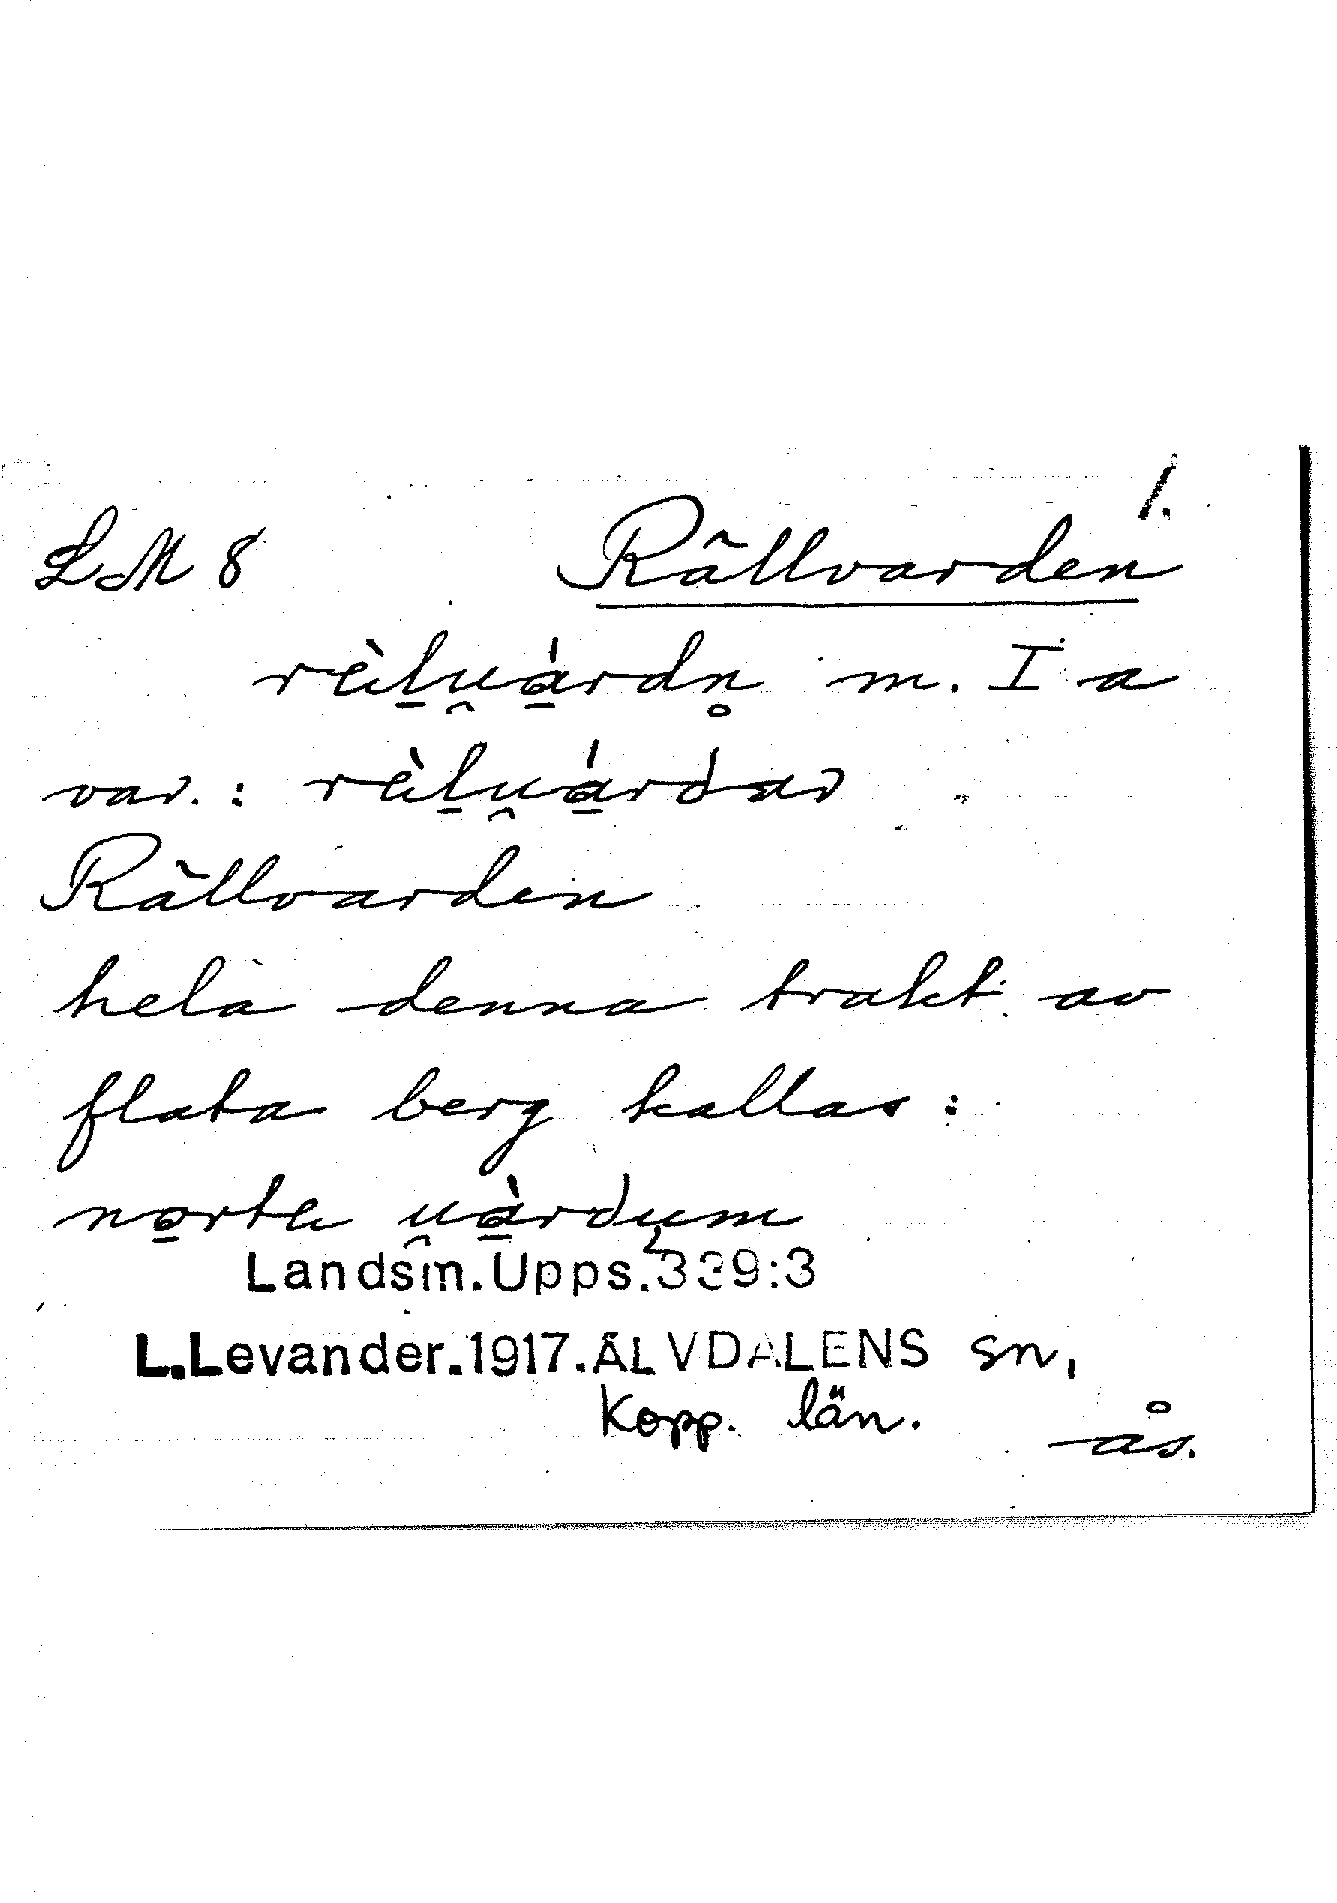 1.
LM 8 Rällvarden
rä̀l̠u̯a̠̍rdn̥ m. I a
var.: rä̀l̠u̯a̠̍rdar
Rällvarden
hela denna trakt av
flata berg kallas:
no̠rta u̯à̠rdum
Landsm.Upps.339:3
L.Levander.1917.ÄLVDALENS sn,
Kopp. län.
ås.